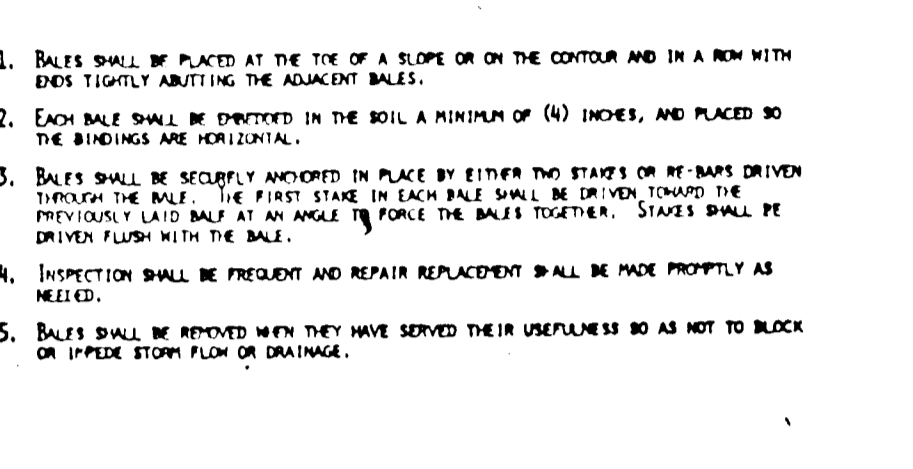 1. BALES SHALL BE PLACED AT THE TOE OF A SLOPE OR ON THE CONTOUR AND IN A ROW WITH
ENDS TIGHTLY ABUTTING THE ADJACENT BALES.
2. EACH BALE SHALL BE EMBEDDED IN THE SOIL A MINIMUM OF (4) INCHES, AND PLACED SO
THE BINDINGS ARE HORIZONTAL.
3. BALES SHALL BE SECURELY ANCHORED IN PLACE BY EITHER TWO STAKES OR RE-BARS DRIVEN
THROUGH THE BALE. THE FIRST STAKE IN EACH BALE SHALL BE DRIVEN TOWARD THE
PREVIOUSLY LAID BALE AT AN ANGLE TO FORCE THE BALES TOGETHER. STAKES SHALL BE
DRIVEN FLUSH WITH THE BALE.
4. INSPECTION SHALL BE FREQUENT AND REPAIR REPLACEMENT SHALL BE MADE PROMPTLY AS
NEEDED.
5. BALES SHALL BE REMOVED WHEN THEY HAVE SERVED THEIR USEFULNESS SO AS NOT TO BLOCK
OR IMPEDE STORM FLOW OR DRAINAGE.